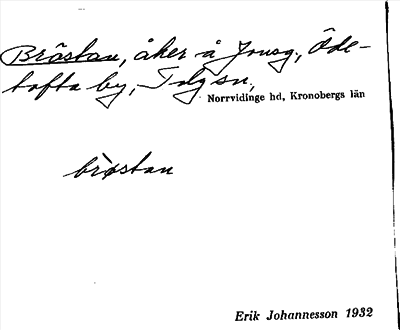 Bröstan, åker å Jonsg., Öde-
tofta by, Tolg sn,
Norrvidinge hd, Kronobergs län
brøstan
Erik Johannesson 1932